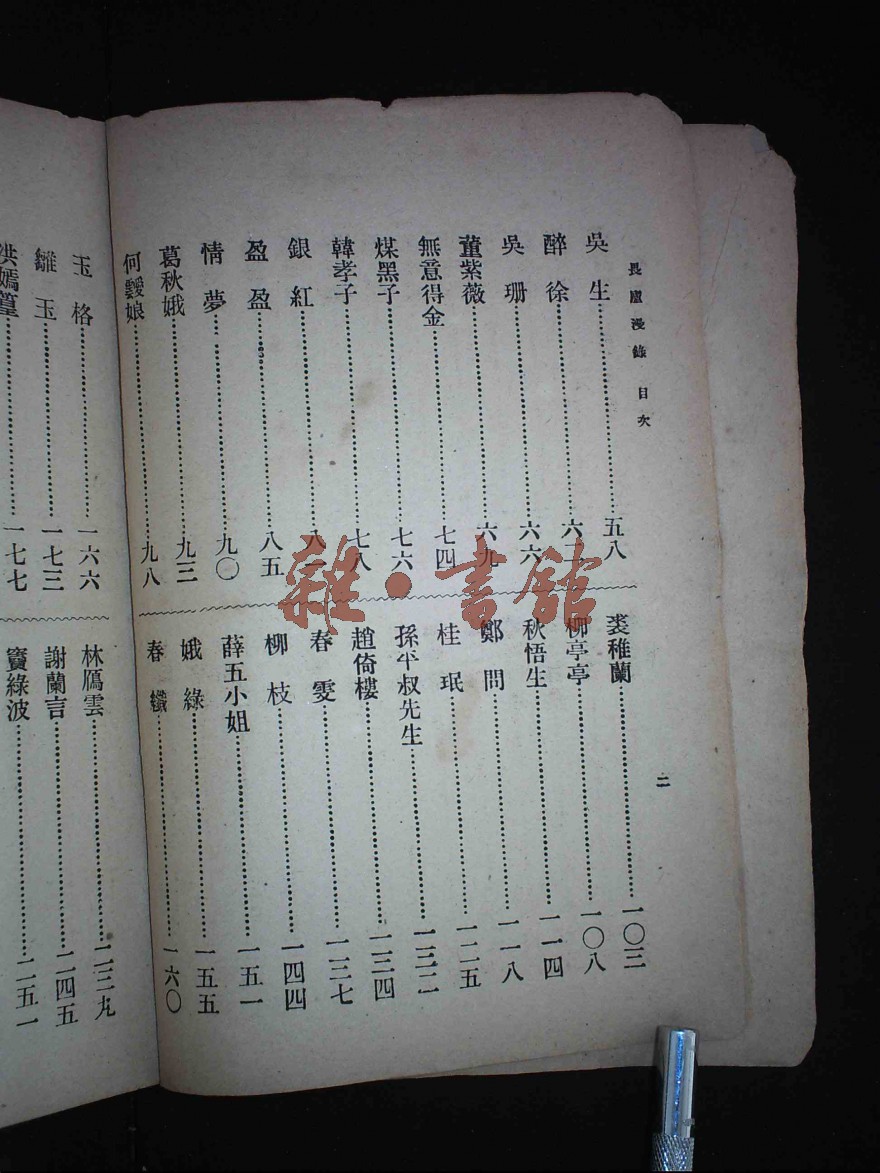 長廬漫錄 目次
二
吳生……五八
醉徐……六二
吳珊……六六
董紫薇……六九
無意得金……七四
煤黑子……七六
韓孝子……七八
銀紅……八一
盈盈……八五
情夢……九〇
葛秋娥……九三
何靉娘……九八
裘稚蘭……一〇三
柳亭亭……一〇八
秋悟生……一一四
鄭問……一一八
桂珉……一二五
孫平叔先生……一三二
趙倚樓……一三四
春雯……一三七
柳枝……一四四
薛五小姐……一五一
娥綠……一五五
春纖……一六〇
玉格……一六六
雛玉……一七三
洪嫣篁……一七七
林鴈雲……二三九
謝蘭言……二四五
竇綠波……二五一
雜·書館